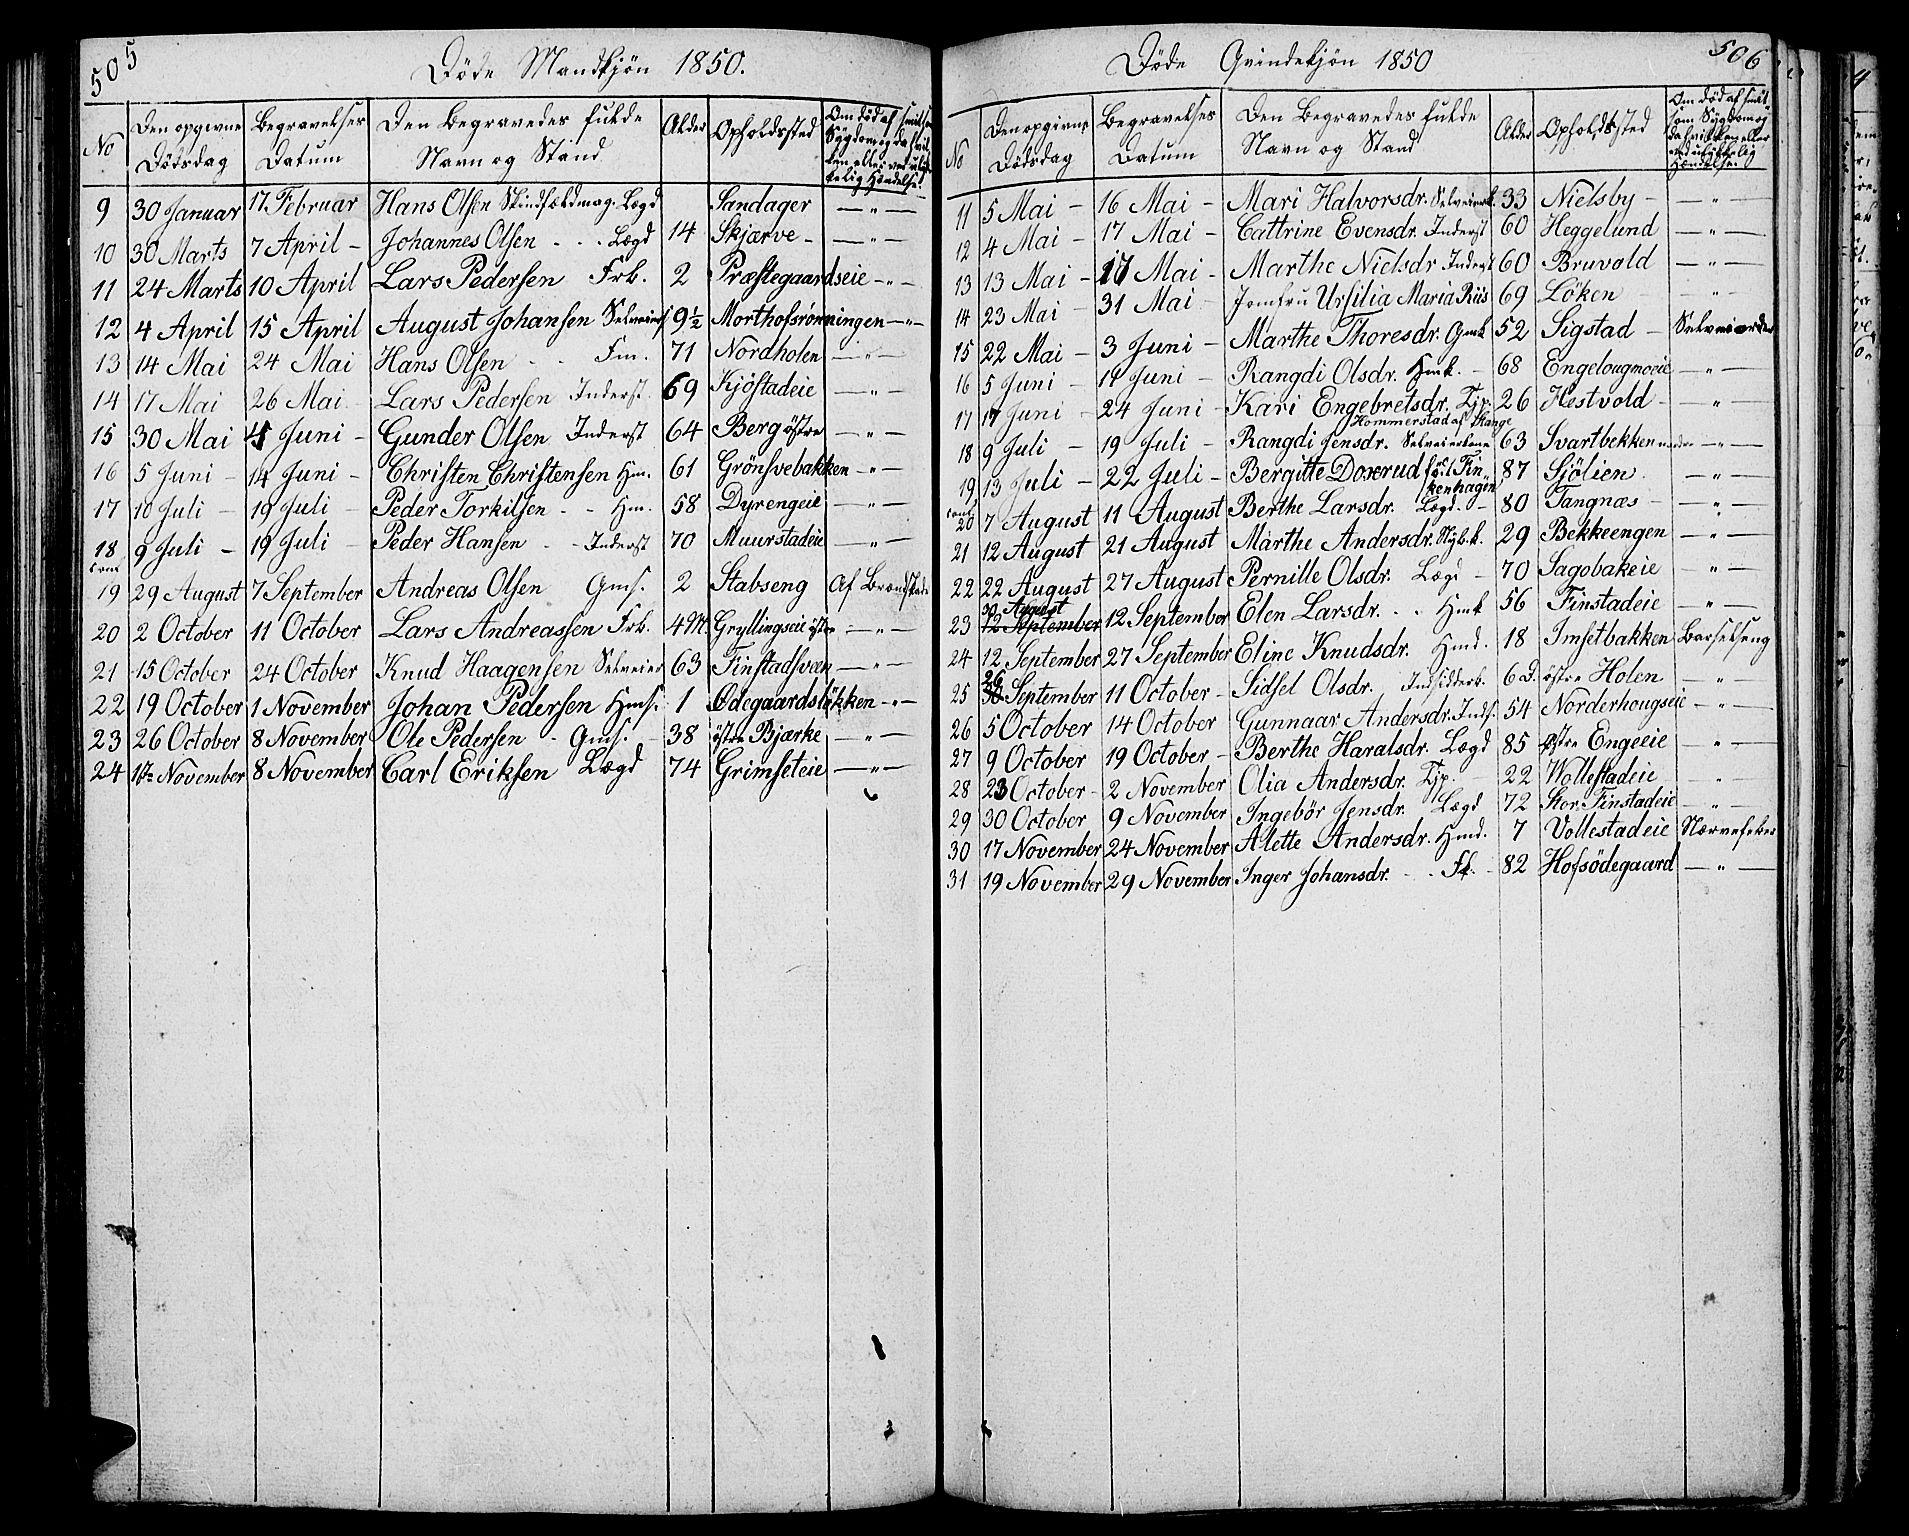 505
Døde Mandkjön 1850.
No Den opgivne Dödsdag Begravelses Datum Den Begravedes fulde Navn og Stand Alder Opholdssted Om död af smitsom Sygdom og da hvilken eller ved ulykkelig Hændelse
9 30 Januar 17 Februar Hans Olsen Lægd Sandager — „ —
10 30 Marts 7 April – Johannes Olsen - - - Lægd 14 Skjærve – — „ —
11 24 Marts 10 April Lars Pedersen Frb. 2 Præstegaardseie – „ –
12 4 April 15 April August Johansen Selveiers 9½ Morthofsrønningen – „ –
13 14 Mai 24 Mai Hans Olsen - - Fm. 71 Nordholen — „ —
14 17 Mai 26 Mai Lars Pedersen Inderst 69 Kjöstadeie — „ —
15 30 Mai 4 Juni – Gunder Olsen Inderst 64 Berg östre — „ —
16 5 Juni – 14 Juni – Christen Christensen Hm. 61 Grönsvebakken – „ –
17 10 Juli – 19 Juli – Peder Torkilsen - - Hm. 58 Dyrengeie — „ —
18 9 Juli – 19 Juli – Peder Hansen - - Inderst 70 Muurstadeie — „ —
19 29 August 7 September Andreas Olsen Gms. 2 Stabseng Af Brændskade
20 2 October 11 October Lars Andreassen Frb. 4 M. Gryllingseie östre – „ –
21 15 October 24 October Knud Haagensen Selveier 63 Finstadsveen — „ —
22 19 October 1 November Johan Pedersen Hms. 1 Ödegaardslökken – „ –
23 26 October 8 November Ole Pedersen - Gms. – 38 östre Bjærke — „ —
24 1ste November 8 November Carl Eriksen Lægd 74 Grimseteie — „ —
506
Døde Qvindekjön 1850
No Den opgivne Dödsdag Begravelses Datum Den Begravedes fulde Navn og Stand Alder Opholdssted Om död af smitsom Sygdom og da hvilken eller ved ulykkelig Hændelse
11 5 Mai – 16 Mai – Mari Halvorsdr. Selveierk. 33 Nielsby – — „ —
12 4 Mai – 17 Mai – Cattrine Evensdr. Inderst 60 Heggelund — „ —
13 13 Mai – 17 Mai – Marthe Nielsdr Inderst 60 Bruvold — „ —
14 23 Mai – 31 Mai Jomfru Ursilia Maria Riis 69 Löken — „ —
15 22 Mai – 3 Juni – Marthe Thoresdr. Gmk 52 Sigstad – Selvmorder
16 5 Juni – 14 Juni – Rangdi Olsdr. Hmk. – 68 Engelougmoeie — „ —
17 17 Juni – 24 Juni – Kari Engebretsdr. Tjp. 26 Hestvold – — „ —
Hommerstad af Stange
18 9 Juli – 19 Juli – Rangdi Jensdr. Selveierkone 63 Svartbekken nedre – „ –
19 13 Juli – 22 Juli – Bergitte Doxerud föd Finkenhagen 87 Sjölien – — „ —
20 7 August 11 August Berthe Larsdr. Lægd. – 80 Tangnæs – — „ —
21 12 August 21 August Marthe Andersdr. Nyb.k. 29 Bekkeengen — „ —
22 22 August 27 August Pernille Olsdr. Lægd – 70 Sagobakeie — „ —
30 August
23 12 September 12 September Elen Larsdr. - - Hmk 56 Finstadeie — „ —
24 12 September 27 September Eline Knudsdr. Hmd. 18 Imsetbakken Barselseng
26
25 30 September 11 October – Sidsel Olsdr. Indsidderb. 6 D. östre Holen — „ —
26 5 October 14 October Gunnaar Andersdr. Inds. 54 Norderhougseie – „ –
27 9 October 19 October – Berthe Haralsdr. Lægd 85 östre Engeeie — „ —
28 23 October – 2 November Olia Andersdr. Tjp. – 22 Wollestadeie — „ —
29 30 October 9 November Ingebör Jensdr. Lægd 72 Stor. Finstadeie – „ –
30 17 November 24 November Alette Andersdr. Hmd. 7 Vollestadeie Nærvefeber
31 19 November 29 November Inger Johansdr. - - Fk. – 82 Hofsödegaard — „ —